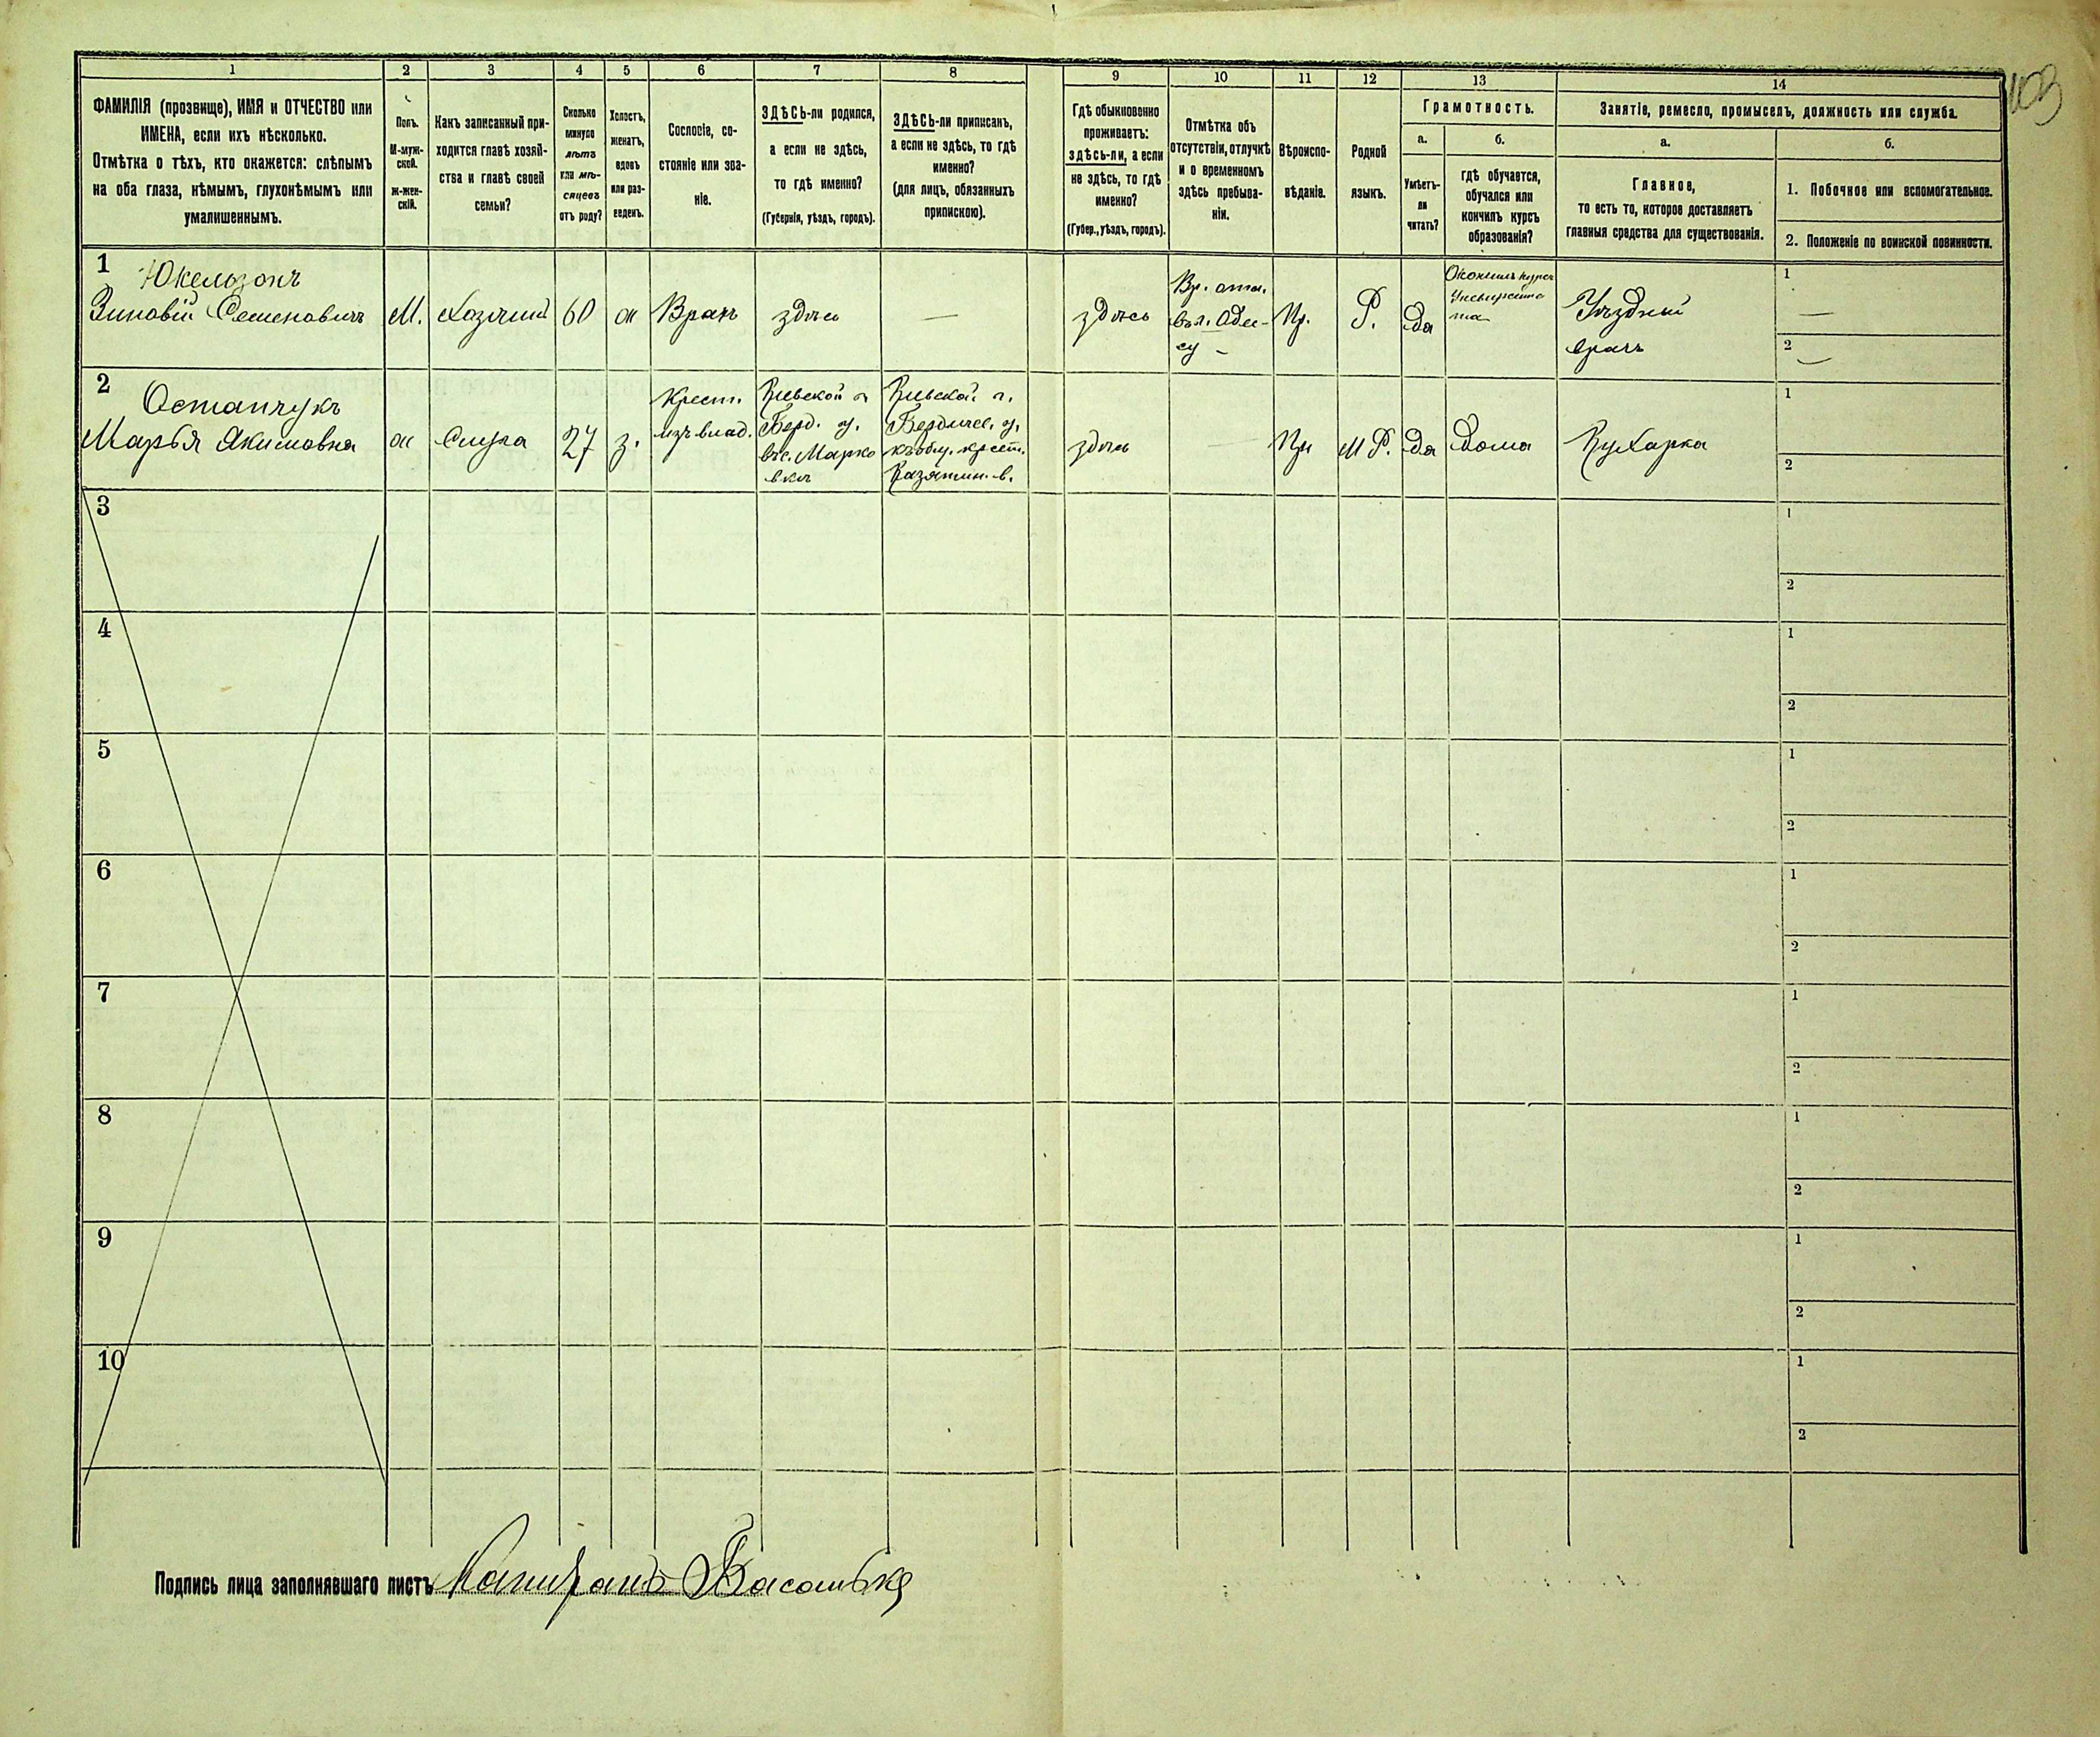 103
1
2
3
4
5
6
7
8
9
10
11
12
13
14
ФАМИЛІЯ (прозвище), ИМЯ и ОТЧЕСТВО или
ИМЕНА, если ихъ нѣсколько.
Отмѣтка о тѣхъ, кто окажется: слѣпымъ
на оба глаза, нѣмымъ, глухонѣмымъ или
умалишеннымъ.
Полъ.
М-муж-
ской.
Ж-жен-
скій.
Какъ записанный при-
ходится главѣ хозяй-
ства и главѣ своей
семьи?
Сколько
минуло
лѣтъ
или мѣ-
сяцевъ
отъ роду?
Холостъ,
женатъ,
вдовъ
или раз-
веденъ.
Сословіе, со-
стояніе или зва-
ніе.
ЗДѢСЬ-ли родился,
а если не здѣсь,
то гдѣ именно?
(Губернія, уѣздъ, городъ).
ЗДѢСЬ-ли приписанъ,
а если не здѣсь, то гдѣ
именно?
(для лицъ, обязанныхъ
припискою).
Гдѣ обыкновенно
проживаетъ:
здѣсь-ли, а если
не здѣсь, то гдѣ
именно?
(Губер., уѣздъ, городъ).
Отмѣтка объ
отсутствіи, отлучкѣ
и о временномъ
здѣсь пребыва-
ніи.
Вѣроиспо-
вѣданіе.
Родной
языкъ.
Грамотность.
а.
Умѣетъ-
ли
читать?
б.
гдѣ обучается,
обучался или
кончилъ курсъ
образованія?
Занятіе, ремесло, промыселъ, должность или служба.
а.
Главное,
то есть то, которое доставляетъ
главныя средства для существованія.
б.
1. Побочное или вспомогательное.
2. Положеніе по воинской повинности.
1
Юкельзонъ
Зиновій Семеновичъ
М.
Хозяинъ
60
ж
Врачъ
здѣсь
—
здѣсь
Вр. отл.
въ г. Одес-
су -
Пр.
Р.
Да
Окончилъ курсъ
Университе
та
Уѣздный
врачъ
1
—
2
—
2
Остапчукъ
Марья Якимовна
ж
Слуга
27
з.
Крест.
изъ влад.
Кіевской г.
Берд. у.
въ с. Марко
вкѣ
Кіевской г.
Бердичев. у.
къ общ. крест.
Казятин. в.
здѣсь
—
Пр
М Р.
Да
Дома
Кухарка
1
2
3
1
2
4
1
2
5
1
2
6
1
2
7
1
2
8
1
2
9
1
2
10
1
2
Подпись лица заполнявшаго листъ